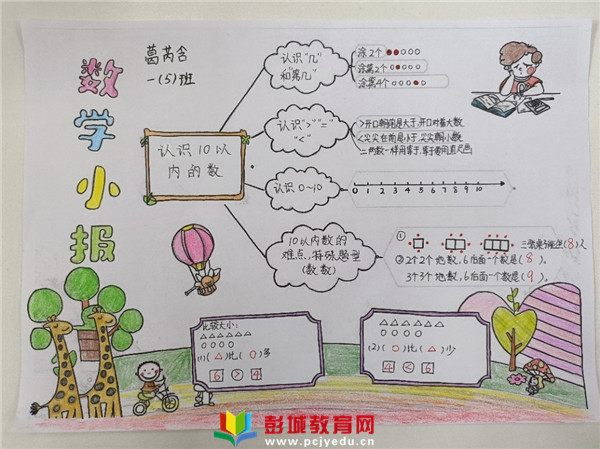 数学小报
葛芮含
一(5)班
认识10以
内的数
认识"几"
和"第几"
涂2个
涂第2个
涂第4个
认识">""="
"<"
>开口朝前是大于,开口对着大数
<尖尖在前是小于,尖尖朝小数
认识0~10
0 1 2 3 4 5 6 7 8 9 10
10以内数的
难点、特殊题型
(数数)
①
(8)人
②2个2个地数,6后面一个数是(8)。
3个3个地数,6后面一个数是(9)。
比较大小:
△△△△△△
○○○○
(1)(△)比(○)多
6>4
△△△△△△
○○○○
(2)(○)比(△)少
4<6
彭城教育网
www.pcjyedu.cn